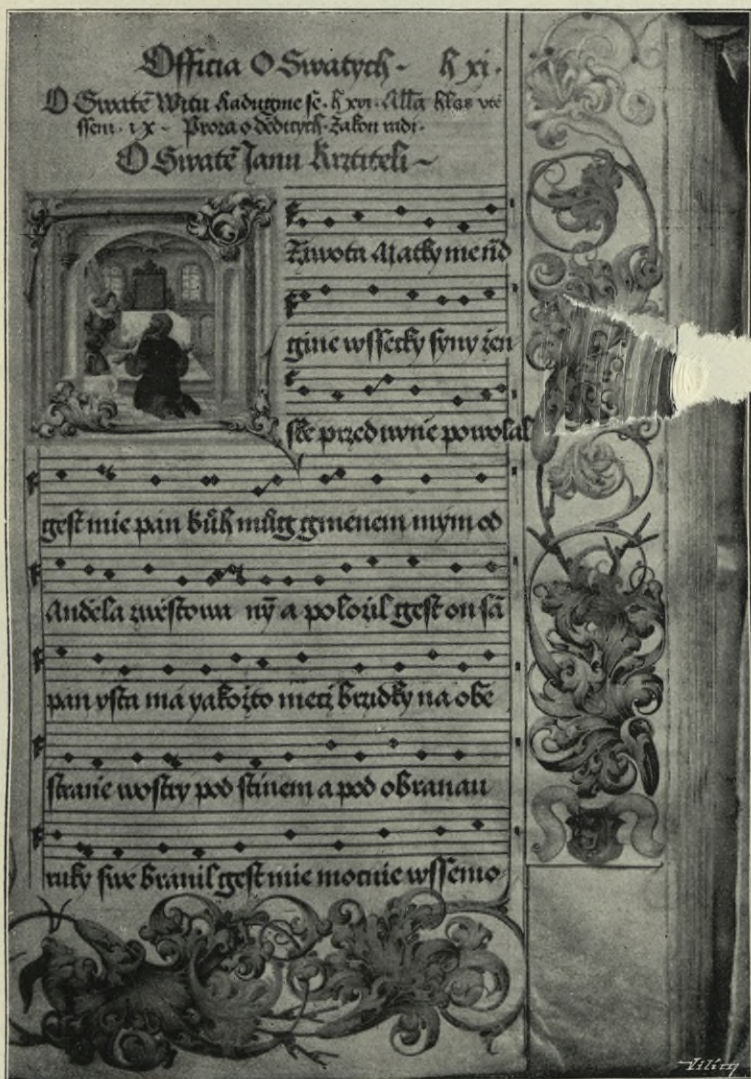 Officia O Swatych · h xi ·
O Swatē Witu hadugme se · h xvi · Alla hlas vte
ssem · ix · Proza o dědicych · Zakon wdi ·
O Swatē Janu krztiteli ~
Ziwota Matky me nid
gine wssecky syny žen
ske przediwnie powolal
gest mie pan bůh mug gmenem mym od
Anděla zwěstowa ný a položil gest on sā
pan vsta ma yakožto mecz brzidky na obe
stranie wostry pod stinem a pod obranau
ruky swe branil gest mie mocnie wssemo